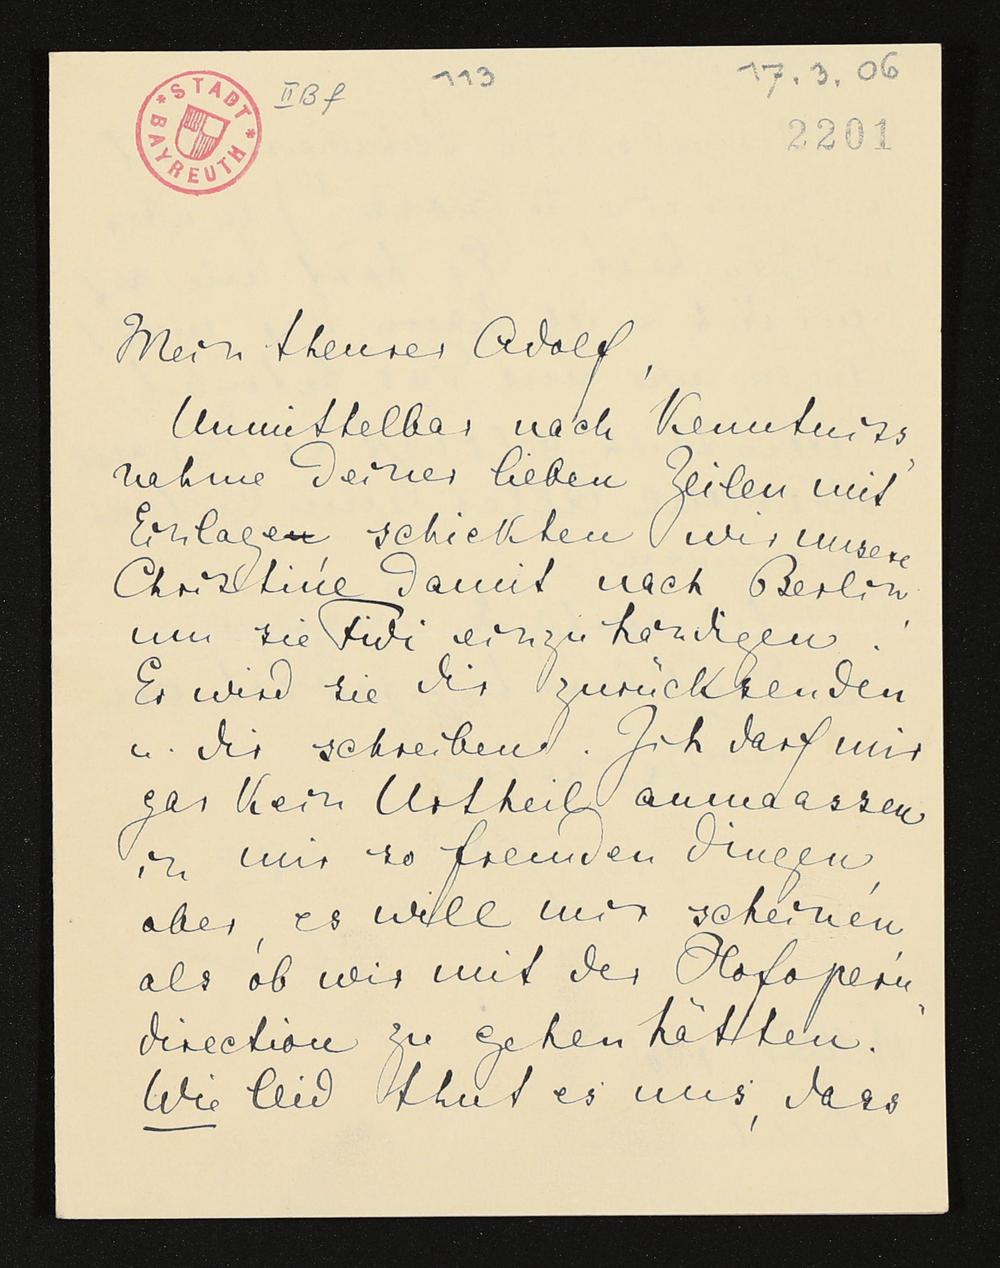 * STADT *
BAYREUTH
II B f
113
17.3.06
2201
Mein theurer Adolf,
Unmittelbar nach Kenntniss„
nahme deiner lieben Zeilen mit
Einlage schickten wir unsere
Christine damit nach Berlin
um sie Fidi einzuhändigen.
Er wird sie dir zurücksenden
u. dir schreiben. Ich darf mir
gar kein Urtheil anmaassen
in mir so fremden Dingen,
aber, es will mir scheinen
als ob wir mit der Hofopern„
direction zu gehen hätten.
Wie leid thut es uns, dass